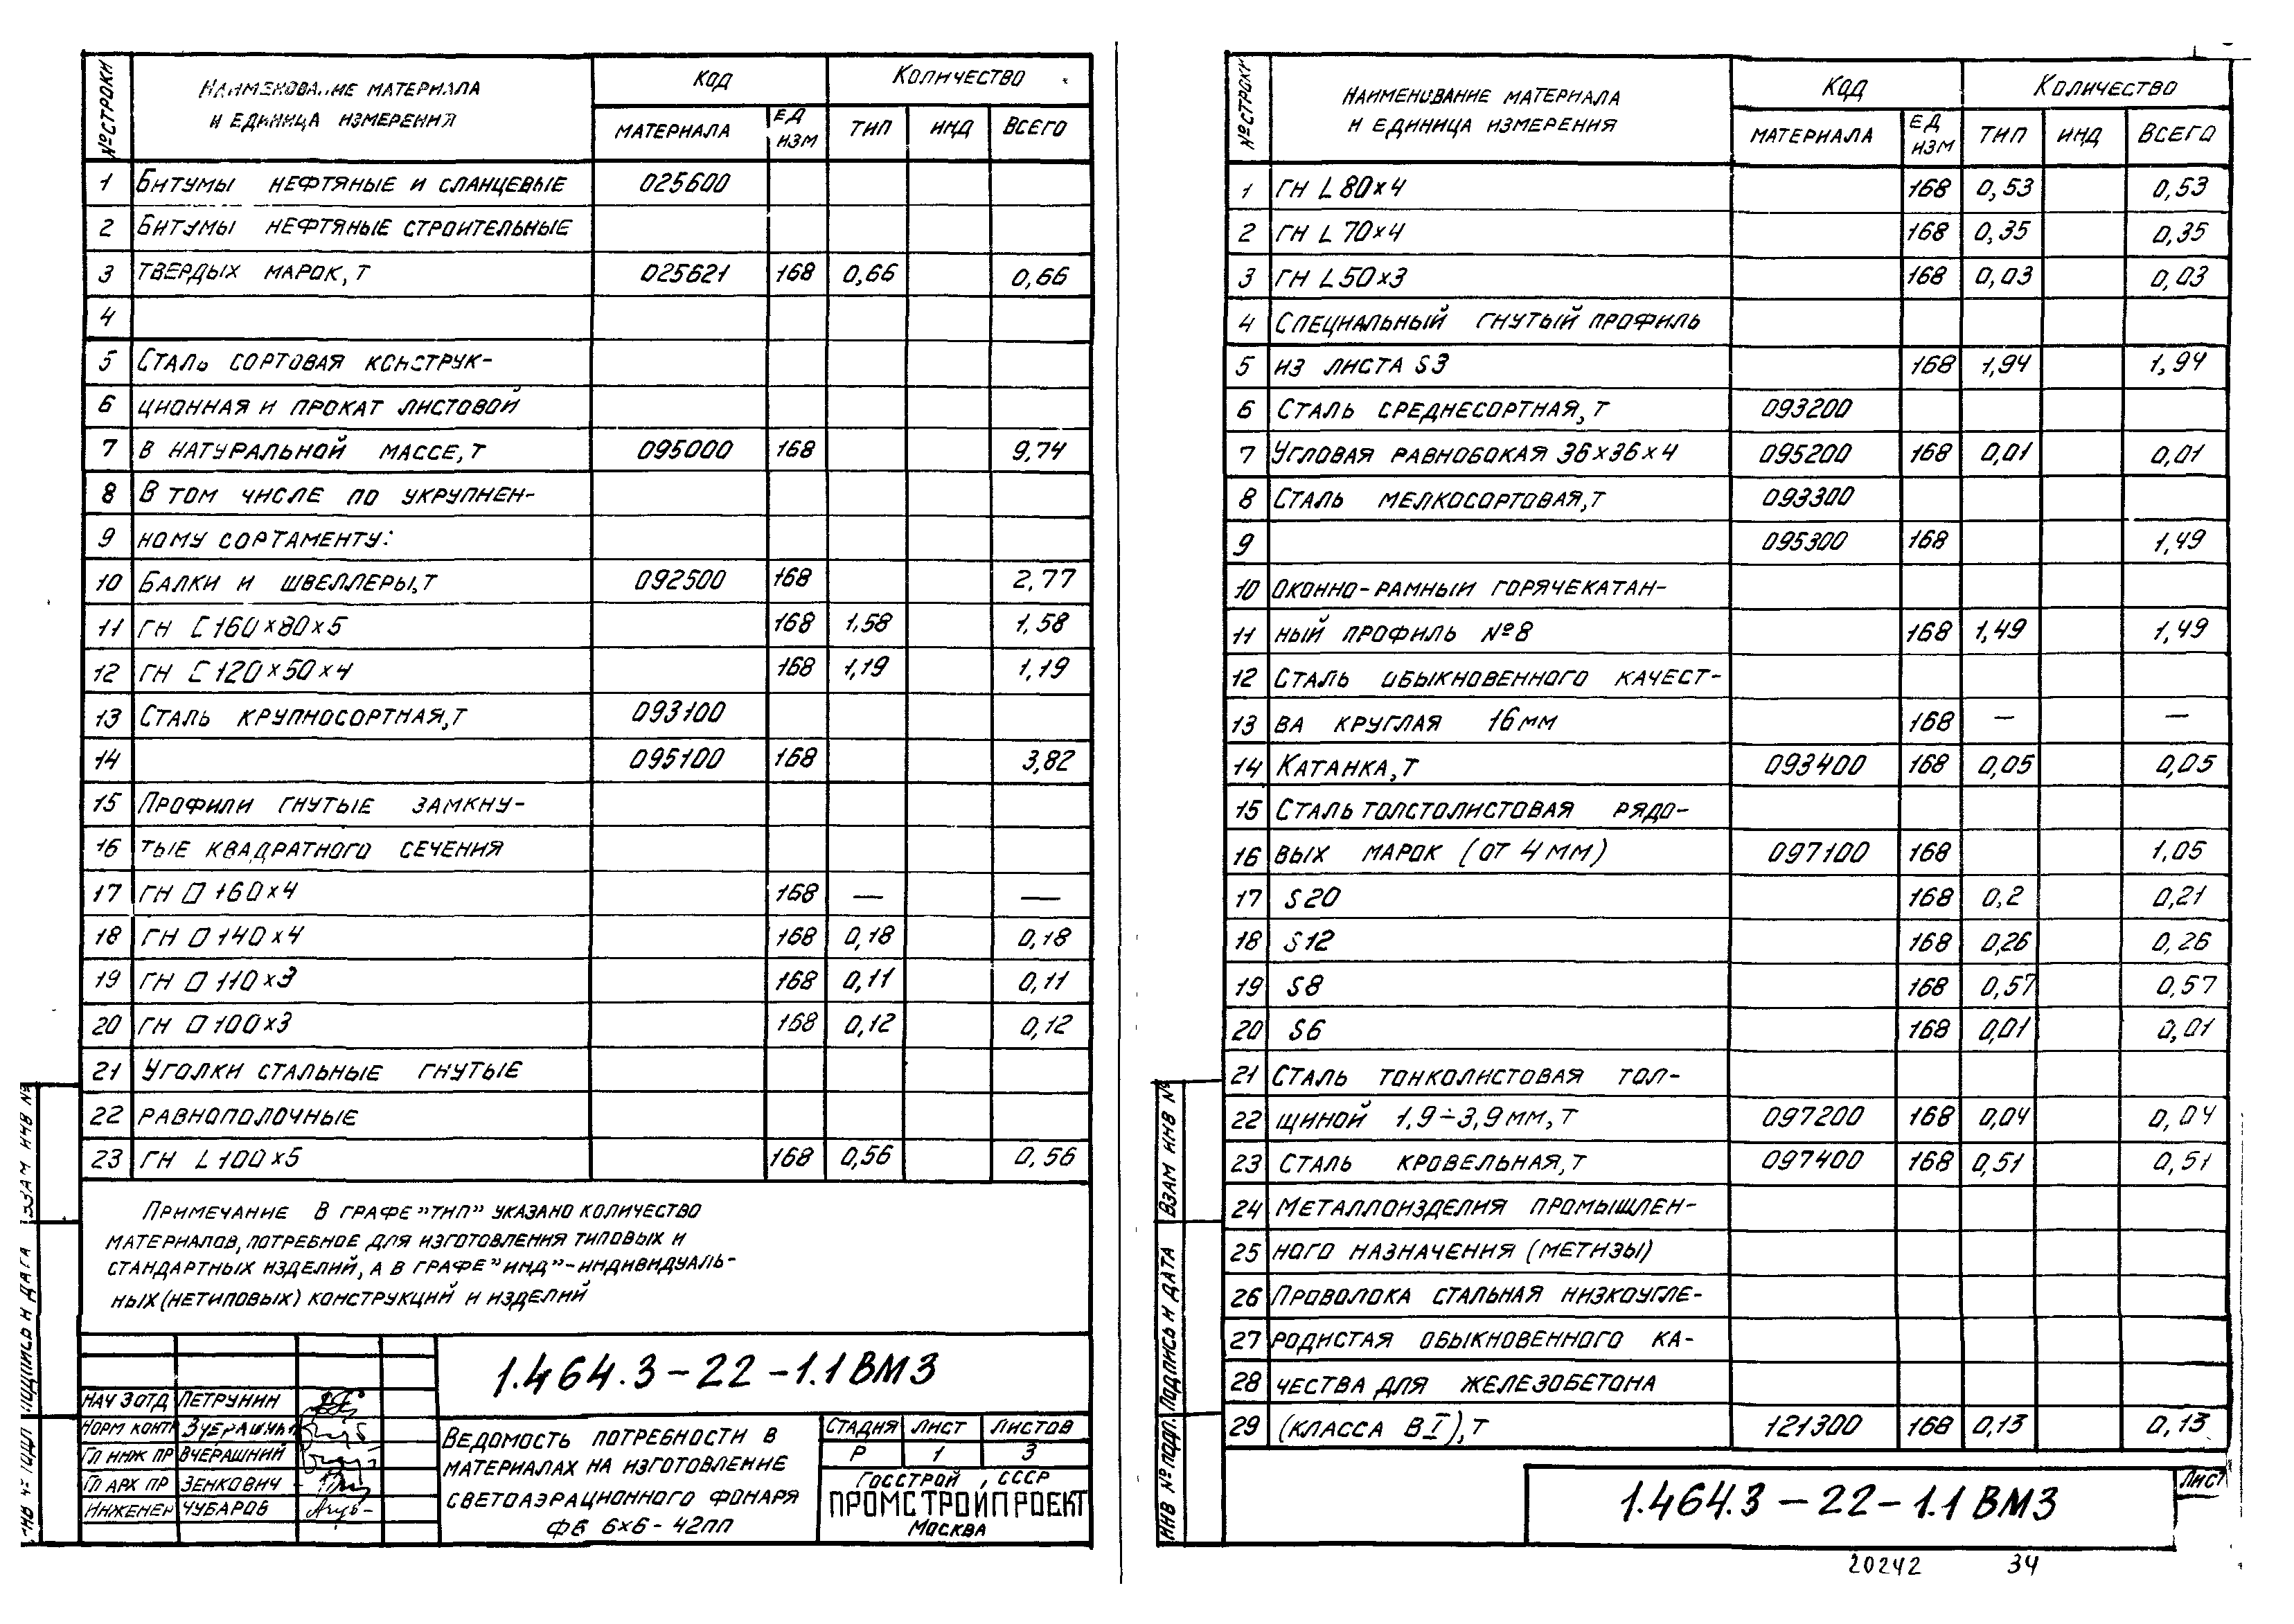 № СТРОКИ
НАИМЕНОВАНИЕ МАТЕРИАЛА
И ЕДИНИЦА ИЗМЕРЕНИЯ
КОД
КОЛИЧЕСТВО
МАТЕРИАЛА ЕД ИЗМ ТИП ИНД ВСЕГО
1 БИТУМЫ НЕФТЯНЫЕ И СЛАНЦЕВЫЕ 025600
2 БИТУМЫ НЕФТЯНЫЕ СТРОИТЕЛЬНЫЕ
3 ТВЕРДЫХ МАРОК, Т 025621 168 0,66 0,66
4
5 СТАЛЬ СОРТОВАЯ КОНСТРУК-
6 ЦИОННАЯ И ПРОКАТ ЛИСТОВОЙ
7 В НАТУРАЛЬНОЙ МАССЕ, Т 095000 168 9,74
8 В ТОМ ЧИСЛЕ ПО УКРУПНЕН-
9 НОМУ СОРТАМЕНТУ:
10 БАЛКИ И ШВЕЛЛЕРЫ, Т 092500 168 2,77
11 ГН [ 160×80×5 168 1,58 1,58
12 ГН [ 120×50×4 168 1,19 1,19
13 СТАЛЬ КРУПНОСОРТНАЯ, Т 093100
14 095100 168 3,82
15 ПРОФИЛИ ГНУТЫЕ ЗАМКНУ-
16 ТЫЕ КВАДРАТНОГО СЕЧЕНИЯ
17 ГН □ 160×4 168 — —
18 ГН □ 140×4 168 0,18 0,18
19 ГН □ 110×3 168 0,11 0,11
20 ГН □ 100×3 168 0,12 0,12
21 УГОЛКИ СТАЛЬНЫЕ ГНУТЫЕ
22 РАВНОПОЛОЧНЫЕ
23 ГН L 100×5 168 0,56 0,56
ПРИМЕЧАНИЕ В ГРАФЕ "ТИП" УКАЗАНО КОЛИЧЕСТВО
МАТЕРИАЛОВ, ПОТРЕБНОЕ ДЛЯ ИЗГОТОВЛЕНИЯ ТИПОВЫХ И
СТАНДАРТНЫХ ИЗДЕЛИЙ, А В ГРАФЕ "ИНД" - ИНДИВИДУАЛЬ-
НЫХ (НЕТИПОВЫХ) КОНСТРУКЦИЙ И ИЗДЕЛИЙ
1.464.3-22-1.1 ВМЗ
НАЧ ЗОТД ПЕТРУНИН
НОРМ КОНТР
ГЛ ИНЖ ПР ВЧЕРАШНИЙ
ГЛ АРХ ПР ЗЕНКОВИЧ
ИНЖЕНЕР ЧУБАРОВ
ВЕДОМОСТЬ ПОТРЕБНОСТИ В
МАТЕРИАЛАХ НА ИЗГОТОВЛЕНИЕ
СВЕТОАЭРАЦИОННОГО ФОНАРЯ
ФБ 6×6-42ПП
СТАДИЯ ЛИСТ ЛИСТОВ
Р 1 3
ГОССТРОЙ, СССР
ПРОМСТРОЙПРОЕКТ
МОСКВА
ВЗАМ ИНВ №
ПОДПИСЬ И ДАТА
ИНВ № ПОДЛ
№ СТРОКИ
НАИМЕНОВАНИЕ МАТЕРИАЛА
И ЕДИНИЦА ИЗМЕРЕНИЯ
КОД
КОЛИЧЕСТВО
МАТЕРИАЛА ЕД ИЗМ ТИП ИНД ВСЕГО
1 ГН L 80×4 168 0,53 0,53
2 ГН L 70×4 168 0,35 0,35
3 ГН L 50×3 168 0,03 0,03
4 СПЕЦИАЛЬНЫЙ ГНУТЫЙ ПРОФИЛЬ
5 ИЗ ЛИСТА S3 168 1,94 1,94
6 СТАЛЬ СРЕДНЕСОРТНАЯ, Т 093200
7 УГЛОВАЯ РАВНОБОКАЯ 36×36×4 095200 168 0,01 0,01
8 СТАЛЬ МЕЛКОСОРТОВАЯ, Т 093300
9 095300 168 1,49
10 ОКОННО-РАМНЫЙ ГОРЯЧЕКАТАН-
11 НЫЙ ПРОФИЛЬ №8 168 1,49 1,49
12 СТАЛЬ ОБЫКНОВЕННОГО КАЧЕСТ-
13 ВА КРУГЛАЯ 16 ММ 168 — —
14 КАТАНКА, Т 093400 168 0,05 0,05
15 СТАЛЬ ТОЛСТОЛИСТОВАЯ РЯДО-
16 ВЫХ МАРОК (ОТ 4 ММ) 097100 168 1,05
17 S20 168 0,2 0,21
18 S12 168 0,26 0,26
19 S8 168 0,57 0,57
20 S6 168 0,01 0,01
21 СТАЛЬ ТОНКОЛИСТОВАЯ ТОЛ-
22 ЩИНОЙ 1,9÷3,9 ММ, Т 097200 168 0,04 0,04
23 СТАЛЬ КРОВЕЛЬНАЯ, Т 097400 168 0,51 0,51
24 МЕТАЛЛОИЗДЕЛИЯ ПРОМЫШЛЕН-
25 НОГО НАЗНАЧЕНИЯ (МЕТИЗЫ)
26 ПРОВОЛОКА СТАЛЬНАЯ НИЗКОУГЛЕ-
27 РОДИСТАЯ ОБЫКНОВЕННОГО КА-
28 ЧЕСТВА ДЛЯ ЖЕЛЕЗОБЕТОНА
29 (КЛАССА ВI), Т 121300 168 0,13 0,13
ВЗАМ ИНВ №
ПОДПИСЬ И ДАТА
ИНВ № ПОДЛ.
1.464.3-22-1.1 ВМЗ
ЛИСТ
20242 34